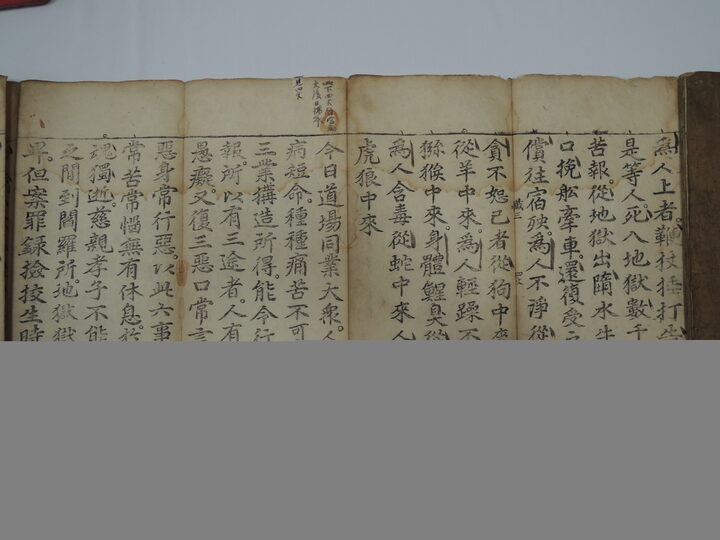 為人上者鞭杖捶打
是等人死入地獄數千
苦報從地獄出墮水牛
口挽舩牽車還復受
償往宿殃為人不淨從
貪不恕己者從狗中來
從羊中來為人輕躁不
猕猴中來身體鯹臭從
為人含毒從蛇中來人
虎狼中來
今日道場同業大衆
病短命種種痛苦不可
三業構造所得能令行
報所以有三途者人有
愚癡又復三惡口常言
惡身常行惡以此六事
常苦常惱無有休息於
魂獨逝慈親孝子不能
之間到閻羅所地獄獄
畢但案罪録撿挍生時